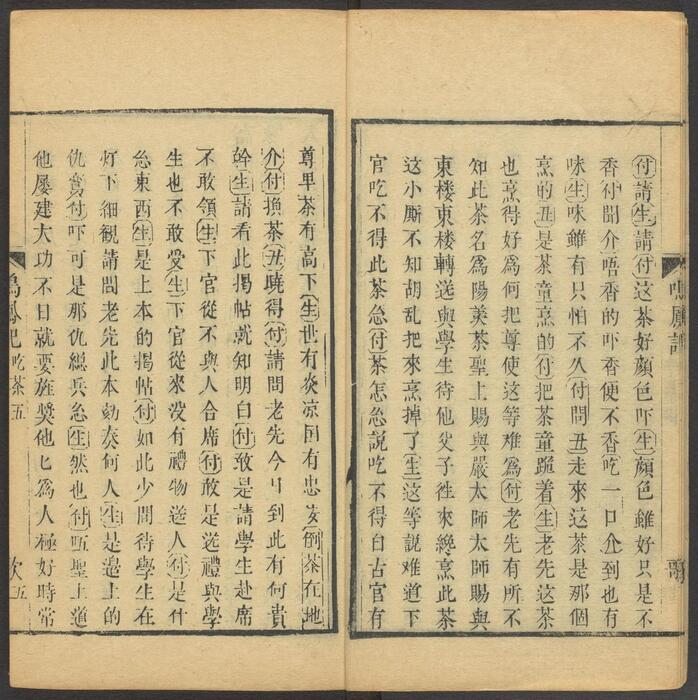 鳴鳳記
付請生請付這茶好顔色吓生顔色雖好只是不
香付聞介唔香的吓香便不香吃一口介到也有
味生味雖有只怕不久付問丑走來這茶是那個
烹的丑是茶童烹的付把茶童跪着生老先這茶
也烹得好爲何把尊使這等难爲付老先有所不
知此茶名爲陽羡茶聖上賜與嚴太師太師賜與
東楼東楼轉送與學生待他父子徃來纔烹此茶
这小厮不知胡乱把來烹掉了生这等説难道下
官吃不得此茶怹付茶怎怹説吃不得自古官有
尊卑茶有高下生世有炎凉国有忠奸倒茶在地
介付換茶丑曉得付請問老先今日到此有何貴
幹生請看此揭帖就知明白付敢是請學生赴席
不敢領生下官從不與人合席付敢是送禮與學
生也不敢受生下官從來没有禮物送人付是什
怹東西生是上本的揭帖付如此少間待學生在
灯下細観請問老先此本劾奏何人生是邉上的
仇鸞付吓可是那仇縂兵怹生然也付聖上道
他屡建大功不日就要旌奬他匕爲人極好時常
鳴鳳記 吃茶 五 次 五